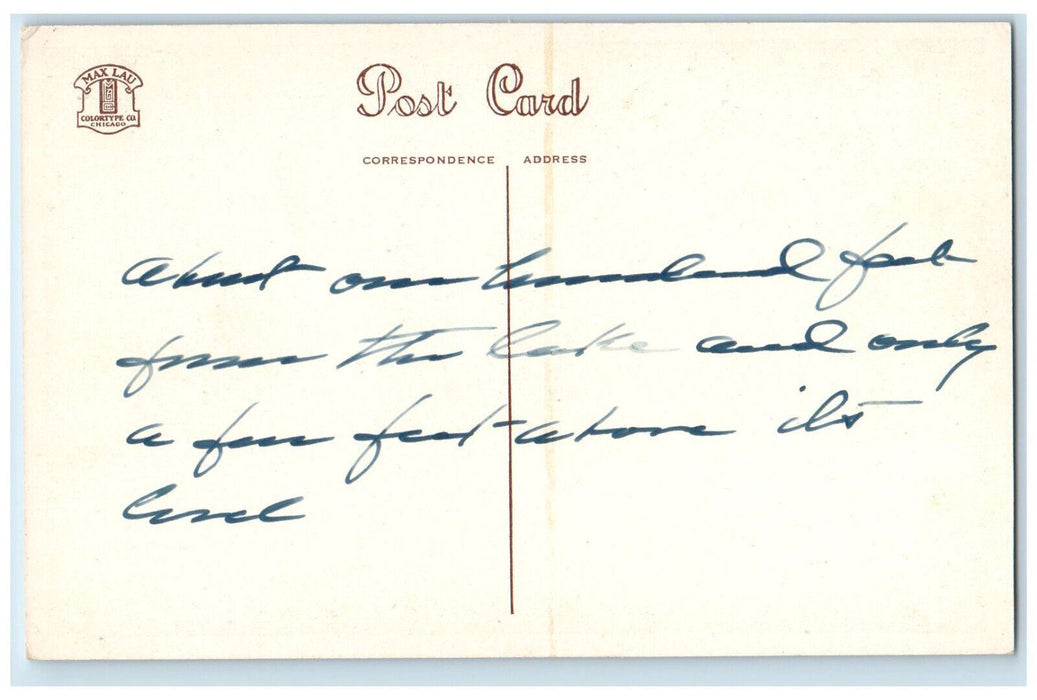 MAX LAU
COLORTYPE CO.
CHICAGO
Post Card
CORRESPONDENCE ADDRESS
about one hundred feet
from the lake and only
a few feet above its
level